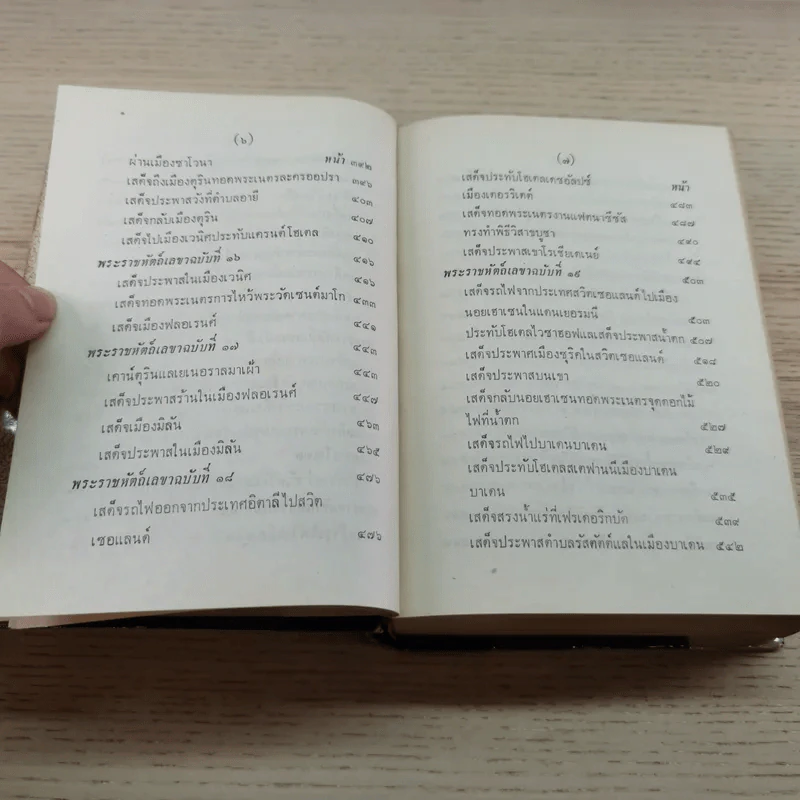 (๖)
หน้า
ผ่านเมืองซาโวนา ๓๙๒
เสด็จถึงเมืองตุรินทอดพระเนตรละครออปรา ๓๙๖
เสด็จประพาสวังที่ตำบลอายี ๔๐๓
เสด็จกลับเมืองตุริน ๔๐๗
เสด็จไปเมืองเวนิศประทับแครนด์โฮเตล ๔๑๐
พระราชหัตถ์เลขาฉบับที่ ๑๖ ๔๑๖
เสด็จประพาสในเมืองเวนิศ ๔๑๖
เสด็จทอดพระเนตรการไหว้พระวัดเซนต์มาโก ๔๓๓
เสด็จเมืองฟลอเรนศ์ ๔๔๑
พระราชหัตถ์เลขาฉบับที่ ๑๗ ๔๔๓
เคาน์ตุรินแลเยเนอราลมาเฝ้า ๔๔๓
เสด็จประพาสร้านในเมืองฟลอเรนศ์ ๔๔๗
เสด็จเมืองมิลัน ๔๖๓
เสด็จประพาสในเมืองมิลัน ๔๖๕
พระราชหัตถ์เลขาฉบับที่ ๑๘ ๔๗๖
เสด็จรถไฟออกจากประเทศอิตาลีไปสวิต
เซอแลนด์ ๔๗๖
(๗)
หน้า
เสด็จประทับโฮเตลเดซอัลปซ์
เมืองเตอรริเตต์ ๔๘๓
เสด็จทอดพระเนตรงานแฟตนาซีซัส ๔๘๗
ทรงทำพิธีวิสาขบูชา ๔๙๐
เสด็จประพาสเขาโรเชียเดเนย์ ๔๙๔
พระราชหัตถ์เลขาฉบับที่ ๑๙ ๕๐๓
เสด็จรถไฟจากประเทศสวิตเซอแลนด์ไปเมือง
นอยเฮาเซนในแดนเยอรมนี ๕๐๓
ประทับโฮเตลไวซาฮอฟแลเสด็จประพาสน้ำตก ๕๐๗
เสด็จประพาศเมืองซุริคในสวิตเซอแลนด์ ๕๑๘
เสด็จประพาสบนเขา ๕๒๐
เสด็จกลับนอยเฮาเซนทอดพระเนตรจุดดอกไม้
ไฟที่น้ำตก ๕๒๗
เสด็จรถไฟไปบาเดนบาเดน ๕๒๙
เสด็จประทับโฮเตลสเตฟานนีเมืองบาเดน
บาเดน ๕๓๕
เสด็จสรงน้ำแร่ที่เฟรเดอริกบัด ๕๓๙
เสด็จประพาสตำบลรัสตัตต์แลในเมืองบาเดน ๕๔๒